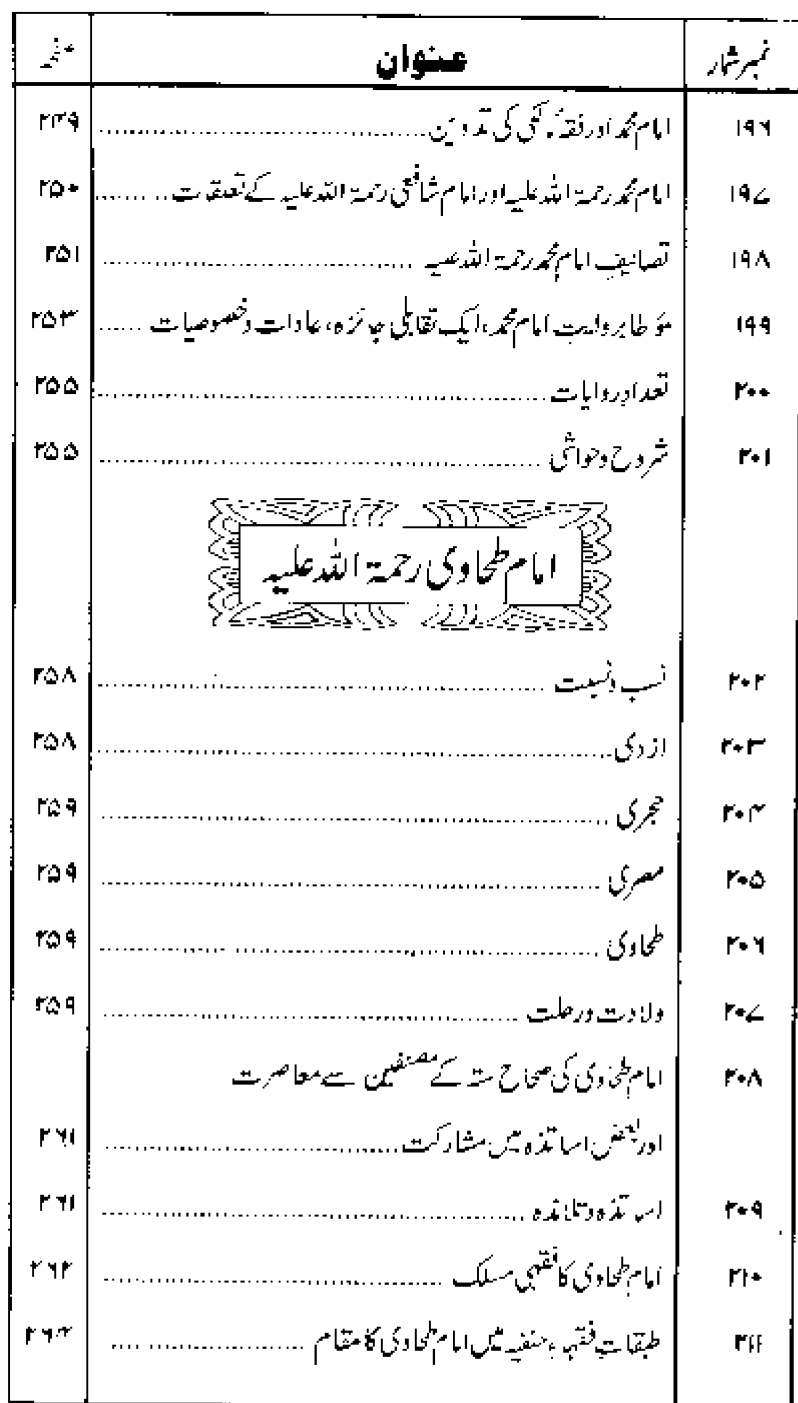 نمبر شمار عنوان صفحہ
۱۹۶ امام محمد اور فقہ حنفی کی تدوین ۲۴۹
۱۹۷ امام محمد رحمۃ اللہ علیہ اور امام شافعی رحمۃ اللہ علیہ کے تعلقات ۲۵۰
۱۹۸ تصانیفِ امام محمد رحمۃ اللہ علیہ ۲۵۱
۱۹۹ مؤطا بروایت امام محمد، ایک تقابلی جائزہ، عادات وخصوصیات ۲۵۳
۲۰۰ تعدادِ روایات ۲۵۵
۲۰۱ شروح وحواشی ۲۵۵
امام طحاوی رحمۃ اللہ علیہ
۲۰۲ نسب ونسبت ۲۵۸
۲۰۳ ازدی ۲۵۸
۲۰۴ حجری ۲۵۹
۲۰۵ مصری ۲۵۹
۲۰۶ طحاوی ۲۵۹
۲۰۷ ولادت ورحلت ۲۵۹
۲۰۸ امام طحاوی کی صحاح ستہ کے مصنفین سے معاصرت
اور بعض اساتذہ میں مشارکت ۲۶۱
۲۰۹ اساتذہ وتلامذہ ۲۶۱
۲۱۰ امام طحاوی کا فقہی مسلک ۲۶۲
۲۱۱ طبقاتِ فقہاءِ حنفیہ میں امام طحاوی کا مقام ۲۶۴